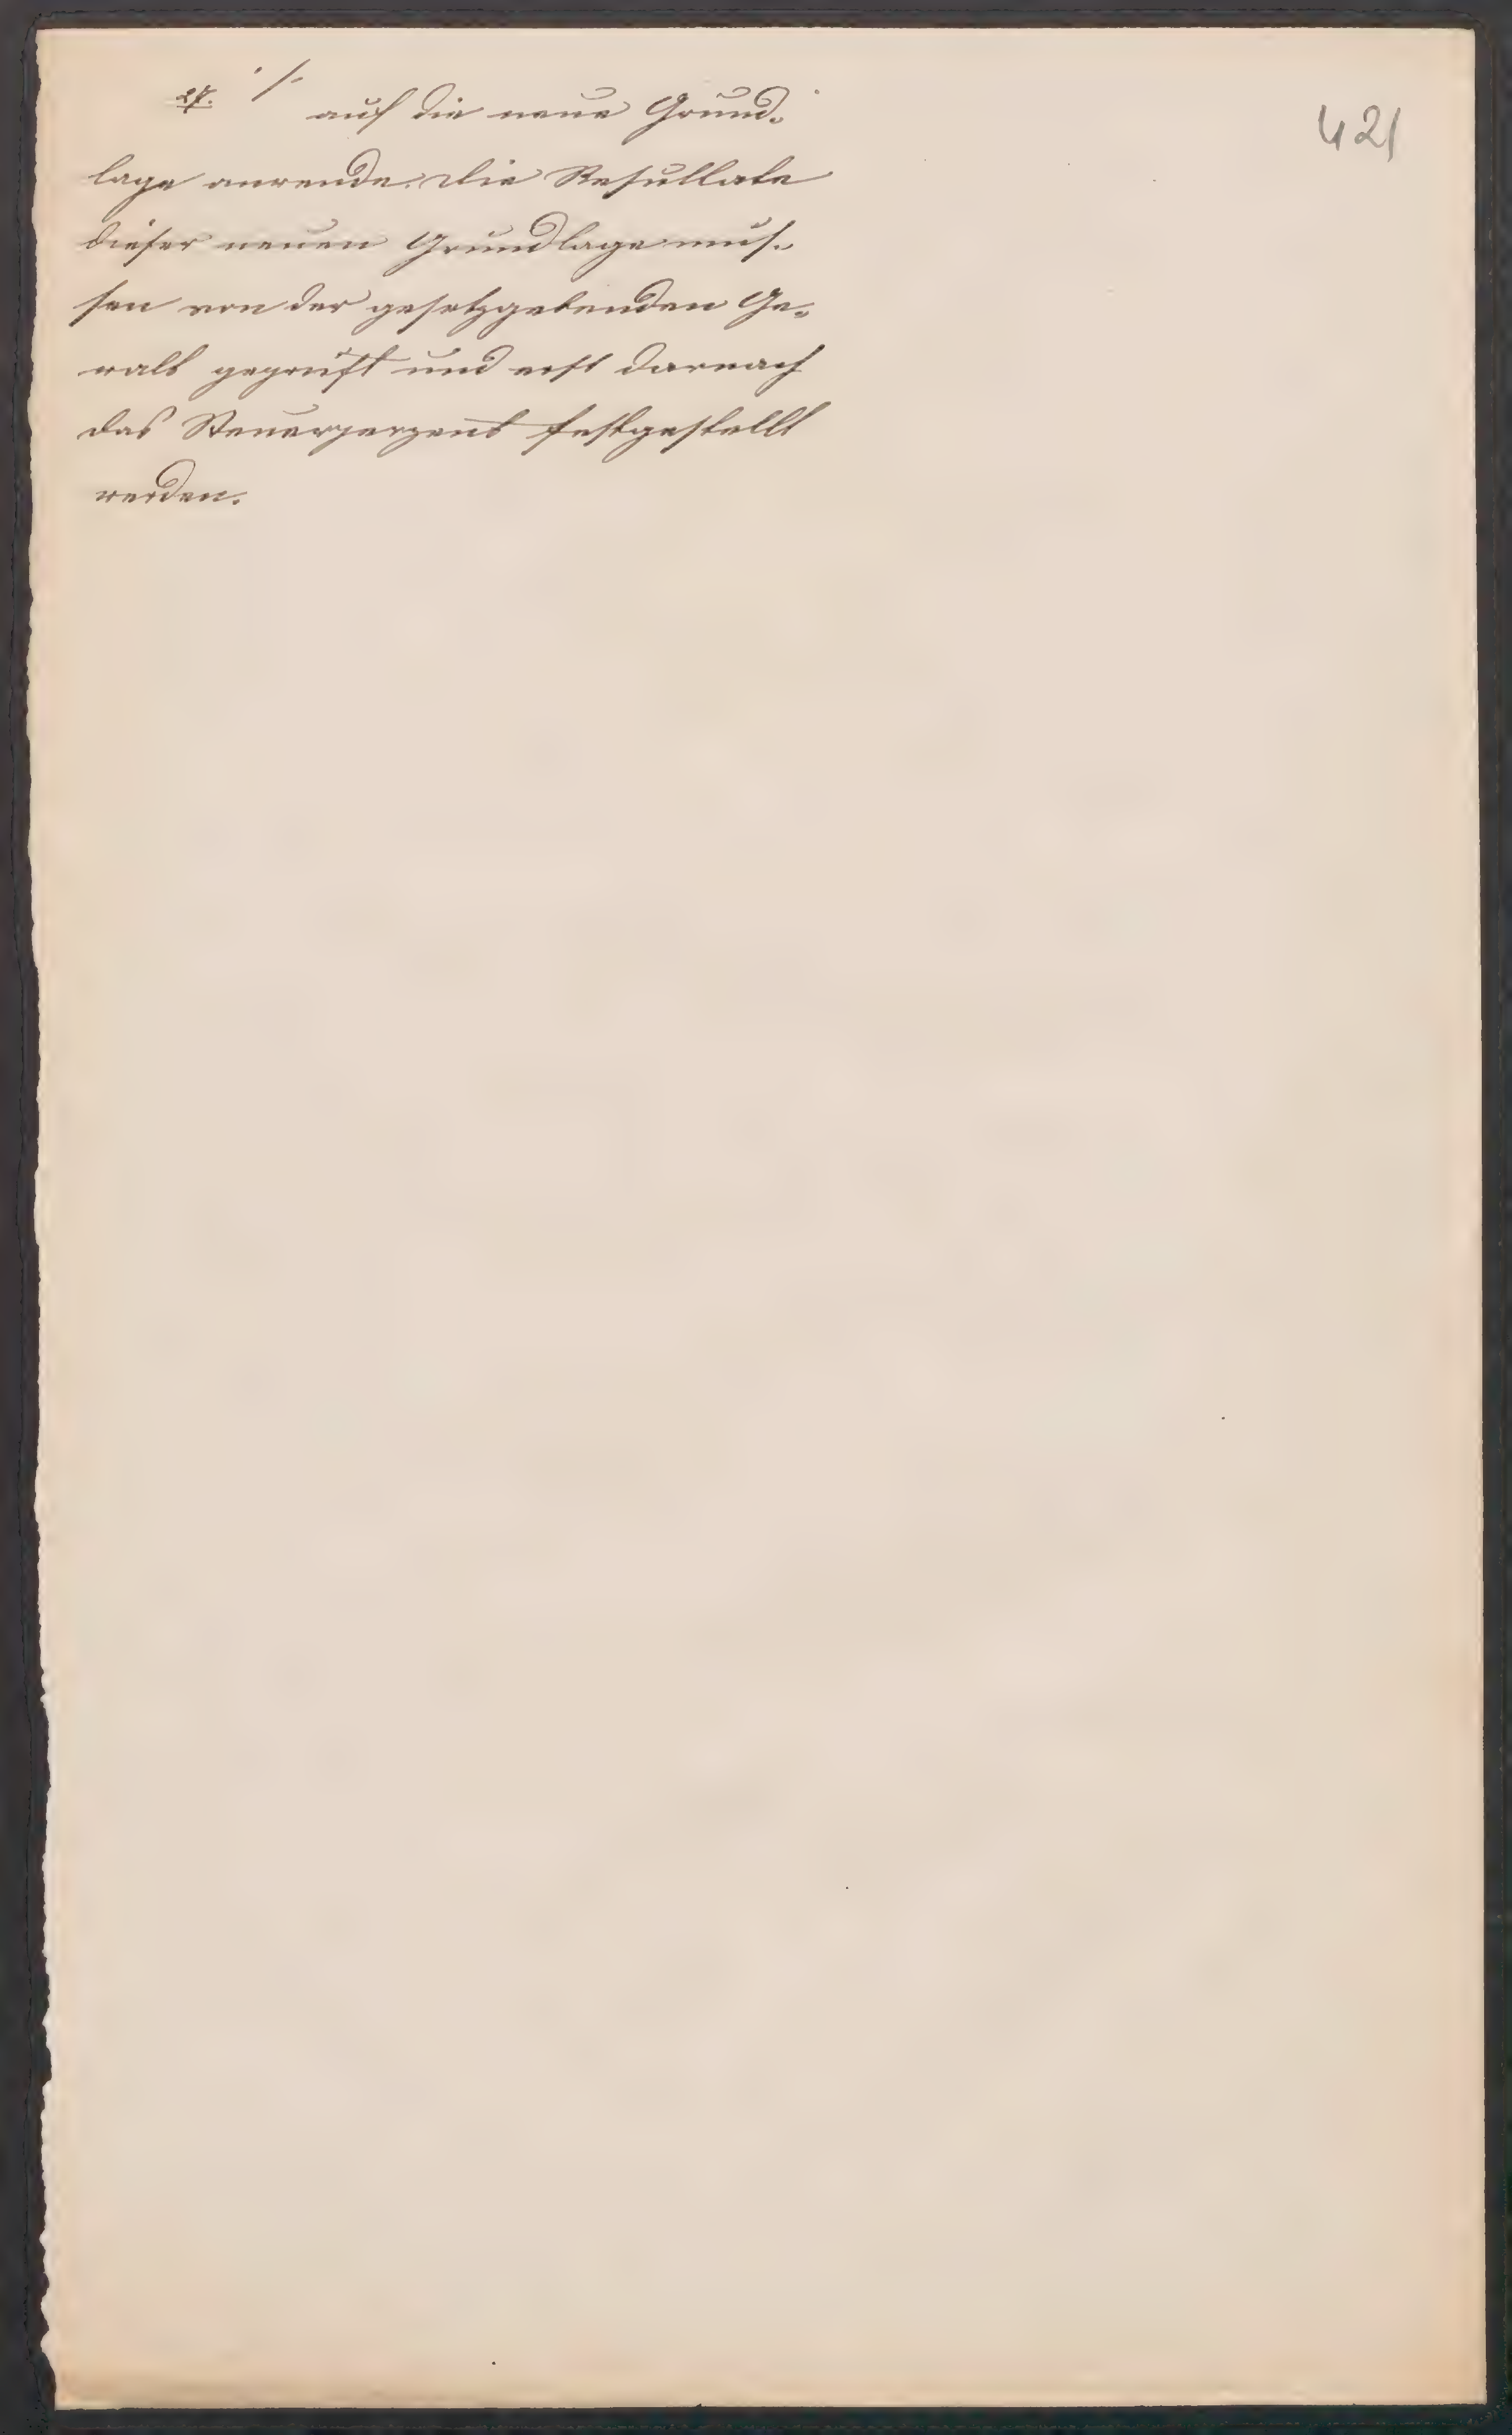 27. ·/· auf die neue Grund-
421
lage anwende. Die Resultate
dieser neuen Grundlage müs-
sen von der gesetzgebenden Ge-
walt geprüft und erst darnach
das Steuerperzent festgestellt
werden.